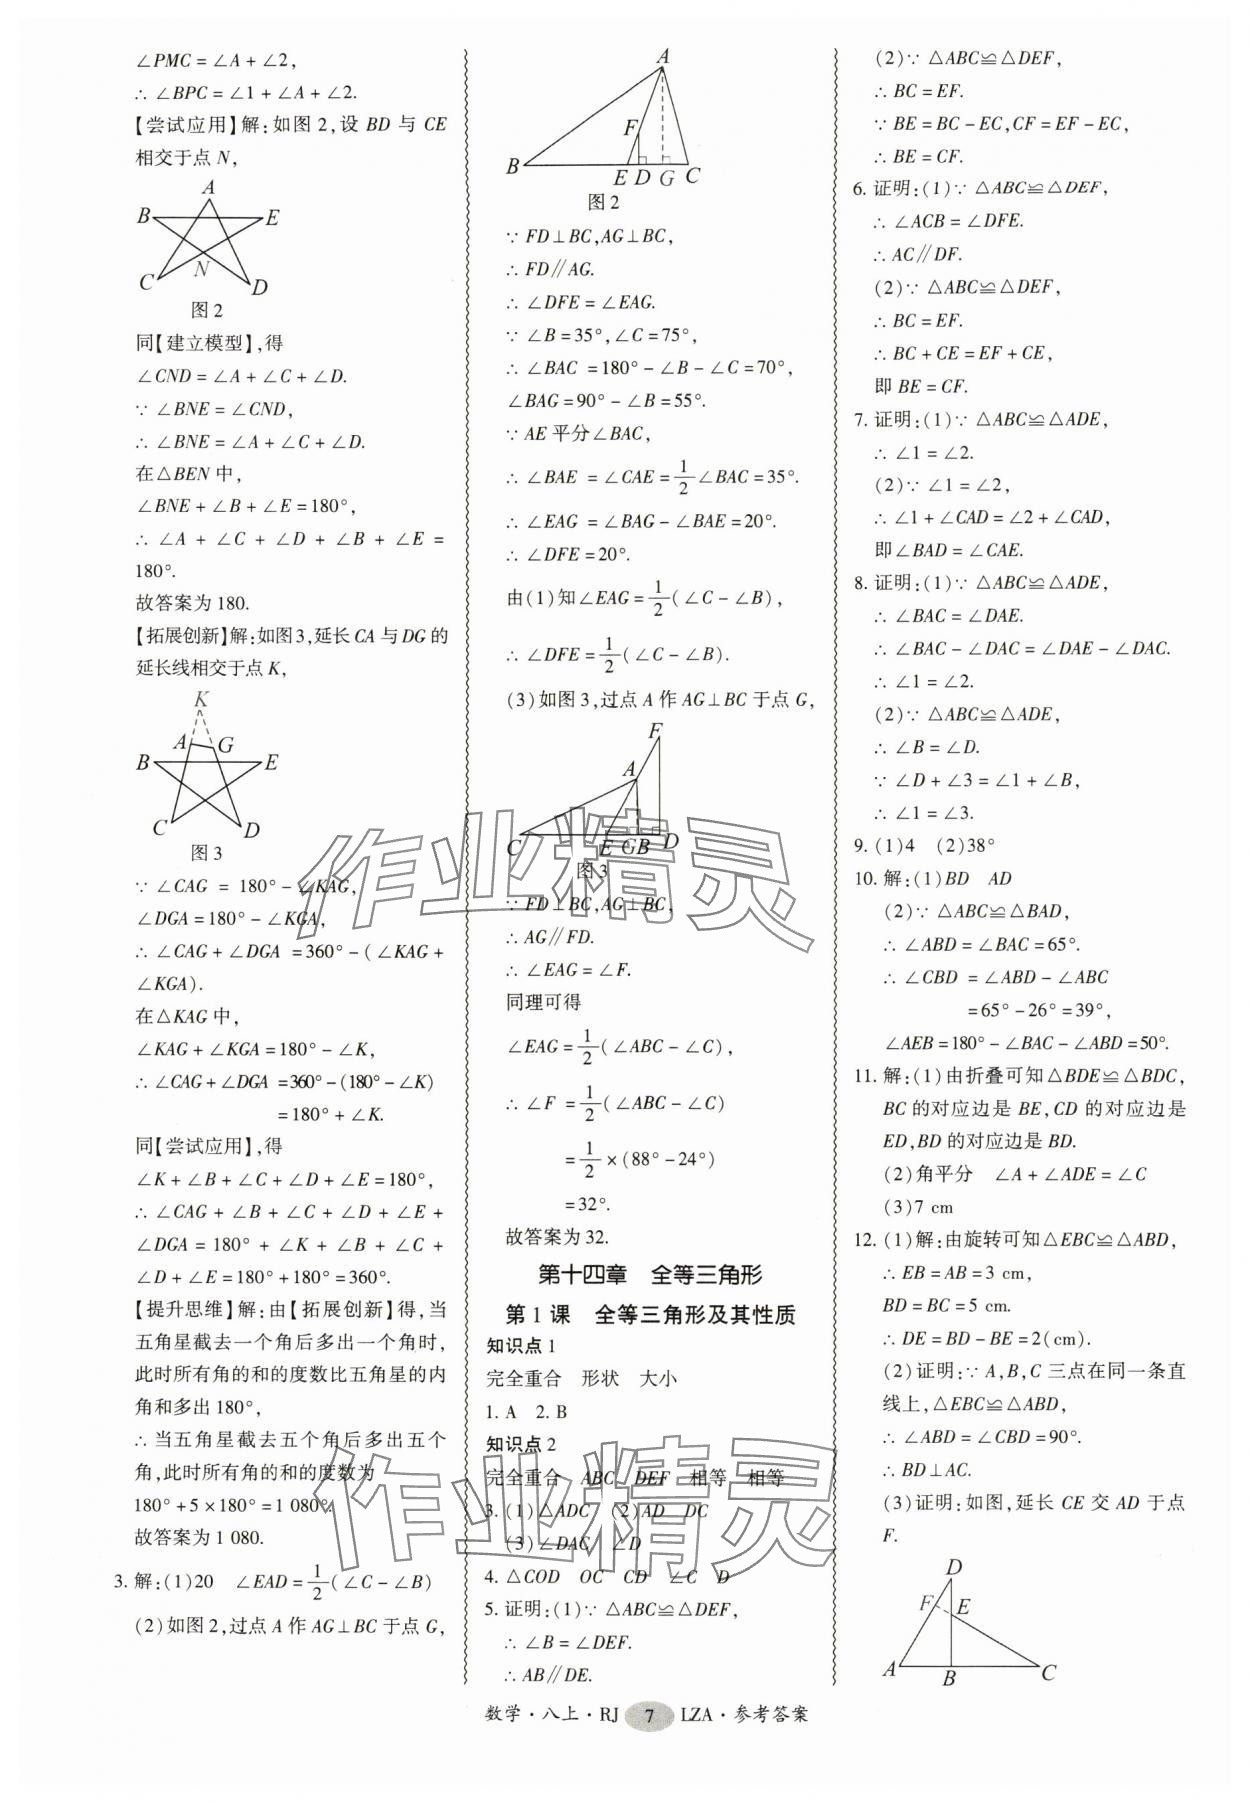 ∠PMC = ∠A + ∠2,
∴ ∠BPC = ∠1 + ∠A + ∠2.
【尝试应用】解:如图 2,设 BD 与 CE
相交于点 N,
A
B
E
N
C
D
图 2
同【建立模型】,得
∠CND = ∠A + ∠C + ∠D.
∵ ∠BNE = ∠CND,
∴ ∠BNE = ∠A + ∠C + ∠D.
在△BEN 中,
∠BNE + ∠B + ∠E = 180°,
∴ ∠A + ∠C + ∠D + ∠B + ∠E =
180°.
故答案为 180.
【拓展创新】解:如图3,延长 CA 与 DG 的
延长线相交于点 K,
K
A
G
B
E
C
D
图 3
∵ ∠CAG = 180° - ∠KAG,
∠DGA = 180° - ∠KGA,
∴ ∠CAG + ∠DGA = 360° - ( ∠KAG +
∠KGA).
在△KAG 中,
∠KAG + ∠KGA = 180° - ∠K,
∴ ∠CAG + ∠DGA = 360° - (180° - ∠K)
= 180° + ∠K.
同【尝试应用】,得
∠K + ∠B + ∠C + ∠D + ∠E = 180°,
∴ ∠CAG + ∠B + ∠C + ∠D + ∠E +
∠DGA = 180° + ∠K + ∠B + ∠C +
∠D + ∠E = 180° + 180° = 360°.
【提升思维】解:由【拓展创新】得,当
五角星截去一个角后多出一个角时,
此时所有角的和的度数比五角星的内
角和多出 180°,
∴ 当五角星截去五个角后多出五个
角,此时所有角的和的度数为
180° + 5 × 180° = 1 080°.
故答案为 1 080.
3. 解:(1)20　∠EAD = 1/2 ( ∠C - ∠B)
(2)如图 2,过点 A 作 AG⊥BC 于点 G,
A
F
B
E D G C
图 2
∵ FD⊥BC,AG⊥BC,
∴ FD∥AG.
∴ ∠DFE = ∠EAG.
∵ ∠B = 35°,∠C = 75°,
∴ ∠BAC = 180° - ∠B - ∠C = 70°,
∠BAG = 90° - ∠B = 55°.
∵ AE 平分∠BAC,
∴ ∠BAE = ∠CAE = 1/2 ∠BAC = 35°.
∴ ∠EAG = ∠BAG - ∠BAE = 20°.
∴ ∠DFE = 20°.
由(1)知∠EAG = 1/2 ( ∠C - ∠B),
∴ ∠DFE = 1/2 ( ∠C - ∠B).
(3)如图 3,过点 A 作 AG⊥BC 于点 G,
F
A
C
E G B D
图 3
∵ FD⊥BC,AG⊥BC,
∴ AG∥FD.
∴ ∠EAG = ∠F.
同理可得
∠EAG = 1/2 ( ∠ABC - ∠C),
∴ ∠F = 1/2 ( ∠ABC - ∠C)
= 1/2 × (88° - 24°)
= 32°.
故答案为 32.
第十四章　全等三角形
第 1 课　全等三角形及其性质
知识点 1
完全重合　形状　大小
1. A　2. B
知识点 2
完全重合　ABC　DEF　相等　相等
3. (1)△ADC　(2)AD　DC
(3)∠DAC　∠D
4. △COD　OC　CD　∠C　D
5. 证明:(1)∵ △ABC≌△DEF,
∴ ∠B = ∠DEF.
∴ AB∥DE.
(2)∵ △ABC≌△DEF,
∴ BC = EF.
∵ BE = BC - EC,CF = EF - EC,
∴ BE = CF.
6. 证明:(1)∵ △ABC≌△DEF,
∴ ∠ACB = ∠DFE.
∴ AC∥DF.
(2)∵ △ABC≌△DEF,
∴ BC = EF.
∴ BC + CE = EF + CE,
即 BE = CF.
7. 证明:(1)∵ △ABC≌△ADE,
∴ ∠1 = ∠2.
(2)∵ ∠1 = ∠2,
∴ ∠1 + ∠CAD = ∠2 + ∠CAD,
即∠BAD = ∠CAE.
8. 证明:(1)∵ △ABC≌△ADE,
∴ ∠BAC = ∠DAE.
∴ ∠BAC - ∠DAC = ∠DAE - ∠DAC.
∴ ∠1 = ∠2.
(2)∵ △ABC≌△ADE,
∴ ∠B = ∠D.
∵ ∠D + ∠3 = ∠1 + ∠B,
∴ ∠1 = ∠3.
9. (1)4　(2)38°
10. 解:(1)BD　AD
(2)∵ △ABC≌△BAD,
∴ ∠ABD = ∠BAC = 65°.
∴ ∠CBD = ∠ABD - ∠ABC
= 65° - 26° = 39°,
∠AEB = 180° - ∠BAC - ∠ABD = 50°.
11. 解:(1)由折叠可知△BDE≌△BDC,
BC 的对应边是 BE,CD 的对应边是
ED,BD 的对应边是 BD.
(2)角平分　∠A + ∠ADE = ∠C
(3)7 cm
12. (1)解:由旋转可知△EBC≌△ABD,
∴ EB = AB = 3 cm,
BD = BC = 5 cm.
∴ DE = BD - BE = 2(cm).
(2)证明:∵ A,B,C 三点在同一条直
线上,△EBC≌△ABD,
∴ ∠ABD = ∠CBD = 90°.
∴ BD⊥AC.
(3)证明:如图,延长 CE 交 AD 于点
F.
D
F
E
A
B
C
数学·八上·RJ 7 LZA·参考答案
作业精灵
作业精灵